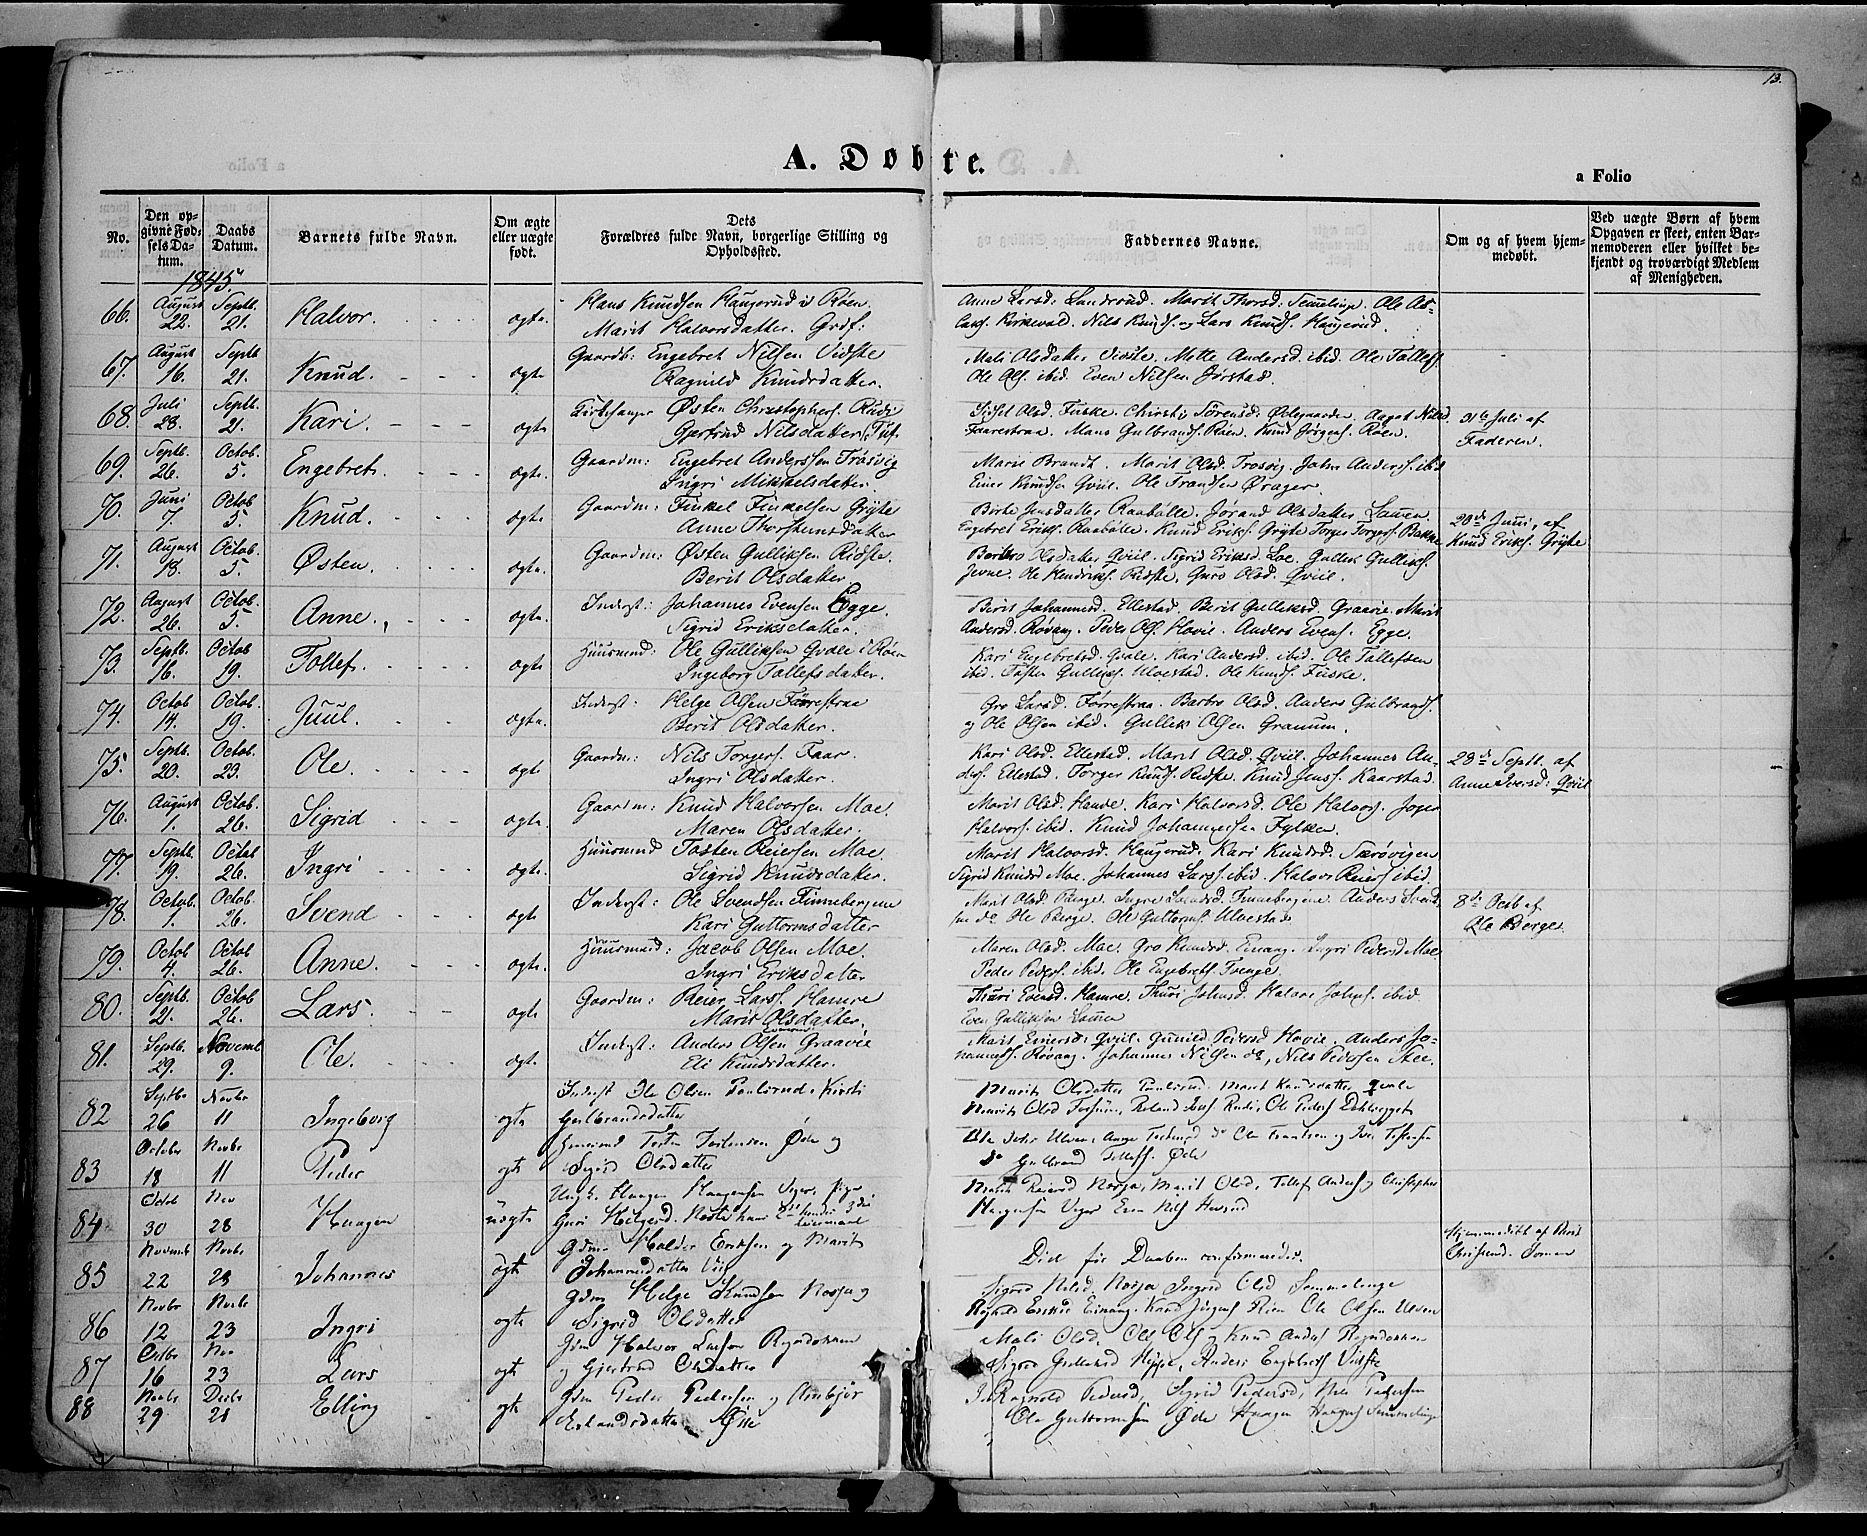 13.
A. Døbte.
a Folio
No.
Den opgivne Fødsels Datum.
Daabs Datum.
Barnets fulde Navn.
Om ægte eller uægte født.
Dets Forældres fulde Navn, borgerlige Stilling og Opholdssted.
Faddernes Navne.
Om og af hvem hjemmedøbt.
Ved uægte Børn af hvem Opgaven er skeet, enten Barnemoderen eller hvilket bekjendt og troværdigt Medlem af Menigheden.
1845.
66. August 22. Septb. 21. Halvor. ægte. Hans Knudsen Haugerud i Røen.
Marit Halvorsdatter.
Anne Larsd. Sundrud. Marit Thorsd. Semelinge. Ole As-
laks. Kirkevold. Nils Knuds. og Lars Knuds. Haugerud.
67. August 16. Septb. 21. Knud. ægte. Gaardb: Engebret Nilsen Vidste
Ragnild Knudsdatter.
Mali Olsdatter Vidste. Mette Andersd. ibid. Ole Tollefs.
Ole Ols. ibid. Even Nilsen Jørstad.
68. Juli 28. Septb. 21. Kari. ægte. Kirkesanger Østen Christophers. Rudi
Gjertrud Nilsdatter
Sidsel Olsd. Fuske. Chirsti Sørensd. Ødegaarden. Aagot Nilsd.
Faarestraa. Hans Gulbrands. Røen. Knud Jørgens. Røen.
31te Juli af
Faderen.
69. Septb. 26. Octob. 5. Engebret. ægte. Gaardm: Engebret Anderssen Trøsvig
Ingri Mikkelsdatter.
Marie Brandt. Marit Olsd. Trosvig. John Anders. ibid
Einer Knudsen Qviil. Ole Frandsen Ørager.
70. Juni 7. Octob. 5. Knud. ægte. Gaardm: Finkel Finkelsen Grythe
Anne Thorstensdatter
Birte Jensdatter Raabølle. Jorand Olsdatter
Engebret Eriks. Raabølle. Knud Eriks. Grythe Torger Torgers. Bakke
20de Juni, af
Knud Eriks. Grythe
71. August 18. Octob. 5. Østen. ægte. Gaardm: Østen Gulliksen Ridste.
Berit Olsdatter
Barbro Olsdatter Qviil. Sigrid Eriksd. Loe. Gullik Gulliks.
Jevne. Ole Hendriks. Ridste. Guro Olsd. Qviil.
72. August 26. Octob. 5. Anne. ægte. Inderst: Johannes Evensen Egge.
Sigrid Eriksdatter.
Berit Johannesd. Ellestad. Berit Gulliksd. Graavie. Marit
Andersd. Røvang. Peder Ols. Hovie. Anders Evens. Egge.
73. Septb. 16. Octob 19. Tollef. ægte. Huusmnd: Ole Gulliksen Qvale i Røen
Ingeborg Tollefsdatter.
Kari Engebretsd. Qvale. Kari Andersd. ibid. Ole Tollefsen
ibid. Tosten Gulliks. Ulvestad. Ole Knuds. Fuske.
74. Octob 14. Octob. 19. Juul. ægte. Inderst: Helge Olsen Førrestraa
Berit Olsdatter.
Gro Larsd. Førrestraa. Barbro Olsd. Anders Gulbrands.
og Ole Olsen ibid. Gullik Olsen Granum.
75. Septb. 20. Octob. 23. Ole. ægte. Gaardm: Nils Torgers. Faar
Ingri Olsdatter.
Kari Olsd. Ellestad. Marit Olsd. Qviil. Johannes An-
ders. Ellestad. Torger Knuds. Ridste. Knud Jens. Kaarstad.
28de Septb. af
Anne Iversd: Qviil
76. August 1. Octob. 26. Sigrid ægte. Gaardm: Knud Halvorsen Moe.
Maren Olsdatter.
Marit Olsd. Hande. Kari Halvorsd. Ole Halvors.
Halvors. ibid. Knud Johannessen Fylken.
77. Septb. 19. Octob 26. Ingri ægte. Huusmnd Tosten Reiersen Moe.
Sigrid Knudsdatter.
Marit Halvorsd. Haugerud. Kari Knudsd. Nærøvigen
Sigrid Knudsd Moe. Johannes Lars. ibid. Halvor Reiers ibid.
78. Octob. 1. Octob. 26. Svend ægte Inderst: Ole Svendsen Finnebergene
Kari Guttormsdatter
Marit Olsd. Berge. Ingri Svendsd. Finnebergene. Anders Svend-
Ole Berge. Ole Guttorms. Ulvestad
8de Octob af
Ole Berge.
79. Octob 4. Octob 26. Anne. ægte. Huusmnd: Jacob Olsen Moe.
Ingri Eriksdatter
Maren Olsd. Moe. Gro Knudsd. Einang. Ingri Pedersd Moe
Peder Peders. ibid. Ole Engebrets.
80. Septb. 21. Octob 26. Lars. ægte Gaardm: Reier Lars. Hamre
Marit Olsdatter.
Thuri Evensd. Hamre. Thuri Johnsd. Halvor Johns. ibid.
Even Gulliksen
81. Septb. 29. Novemb 9. Ole. ægte. Inderst: Anders Olsen Graavie
Eli Knudsdatter.
Marit Einersd. Qviil. Gunild Pedersd Hovie. Anders Jo-
hanness. Røvang. Johannes Nilsen og, Nils Pedersen
82 Septbr 26 Novbr 11 Ingeborg ægte Inderst Ole Olsen Paulsrud. Kirsti
Gulbrandsdatter
Marit Olsdatter Paulsrud. Marit Knudsdatter Qvale
Marit Olsd
83 October 18 Novbr 11 Peder ægte Huusmnd Tosten Tostensen Øde og
Sigrid Olsdatter
Gulbrand Tollefs. Øde
84 Octob 30 Nov 23 Haagen uægte Ungk. Haagen Haagensen
Guri Helgesd.
Haagensen
85 Novemb 22 Novbr 23 Johannes ægte Gdm Halvor Eriksen og Marit
Johannesdatter
Død før Daaben confirmeredes.
Hjemmedøbt af
86 Novbr 12 Novbr 23 Ingri ægte Gdm Helge Knudsen Nosja og
Sigrid Olsdatter
Sigrid Nilsd. Nosja Ingrid Olsd Semmelinge
Einang. Knud Jørgens Røen Ole Olsen Ulven
87 Octbr 16 Nov 23 Lars ægte Gdm Halvor Larsen
og Gjertrud Olsdatter
Mali Olsd. Ole Ols og Knud Anders
Sigrid Gulliksd Anders Engebrets Vidste
88 Novbr 29 Decbr 21 Elling ægte Gdm Peder Pedersen og
Erlandsdatter
Ragnild Pedersd, Sigrid Pedersd, Nils Pedersen
Ole Guttormsen Øde Haagen Haagens Semmelinge